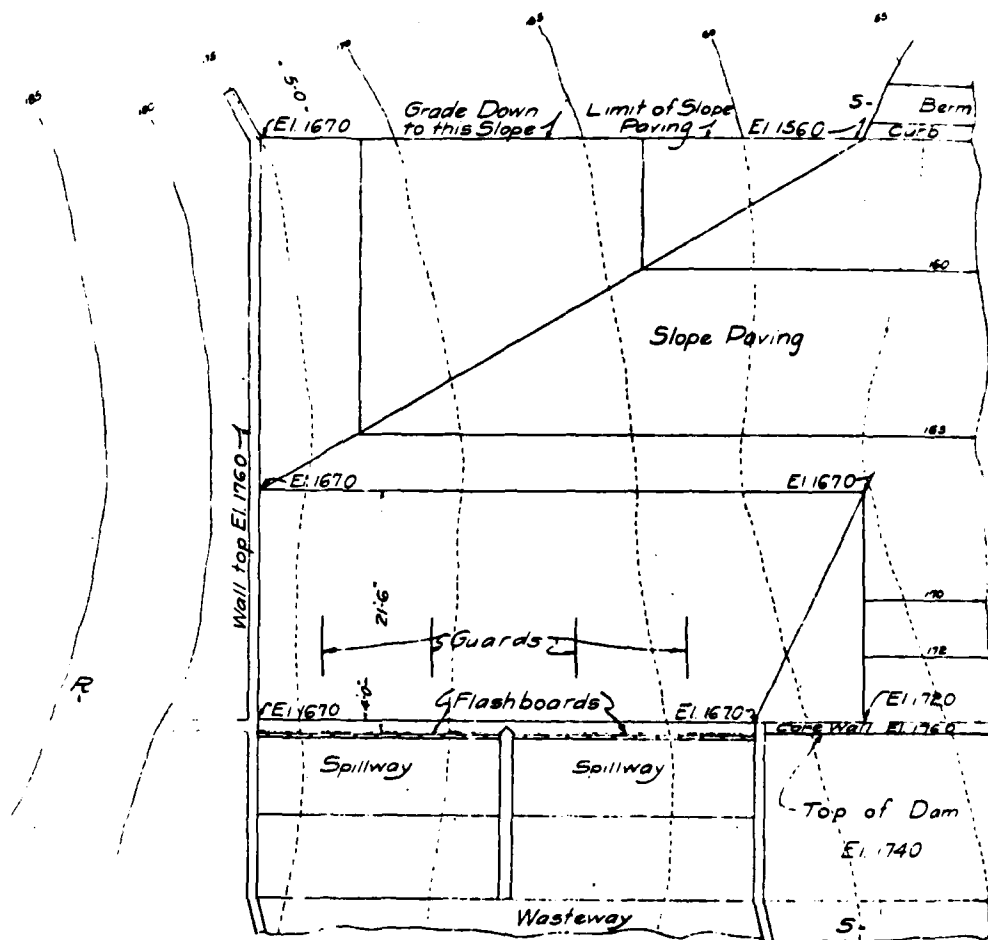 185
180
175
170
165
60
55
5.0-
Grade Down
to this Slope
Limit of Slope
Paving
S-
Berm
Curb
El. 1670
El. 1560
160
Slope Paving
165
Wall top El. 1760
El. 1670
El. 1670
21'-6"
170
Guards
172
R
El. 1670
4'-0"
Flashboards
El. 1670
El. 1720
Core Wall El. 1760
Spillway
Spillway
Top of Dam
El. 1740
Wasteway
S-